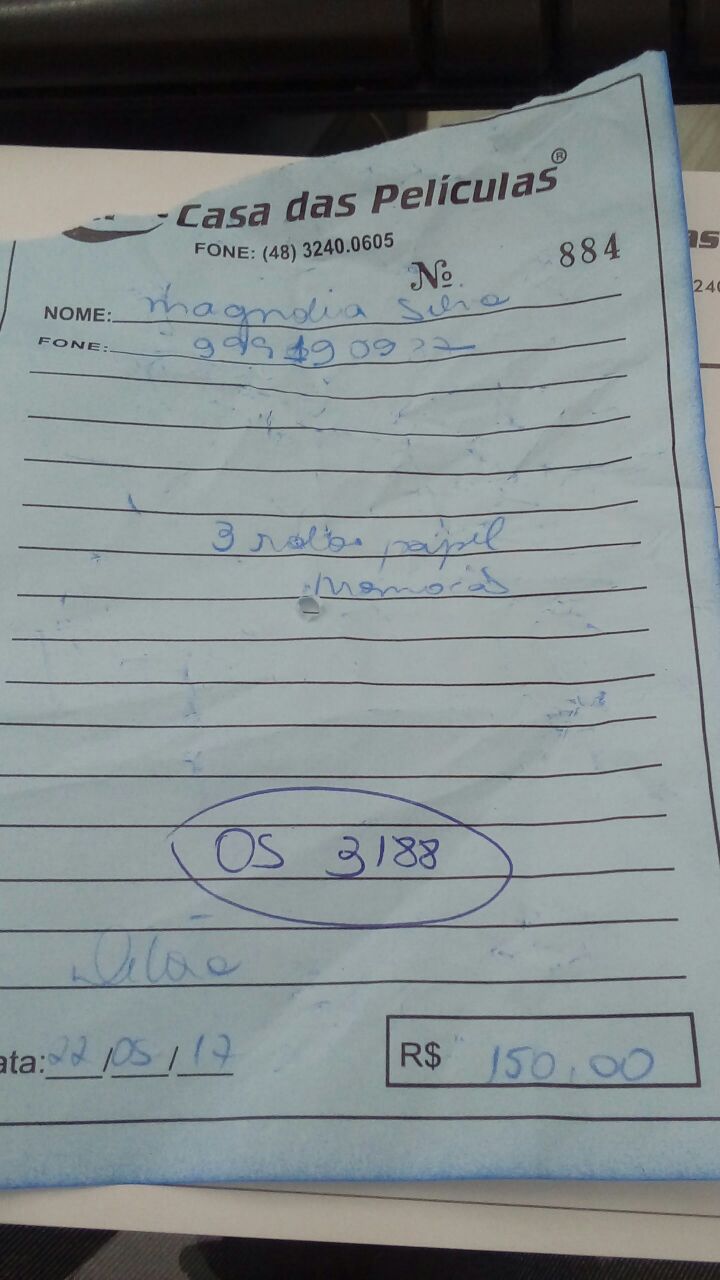 Casa das Películas®
FONE: (48) 3240.0605
Nº 884
NOME: Magnolia Silva
FONE:
3 rolos papel
OS 3188
ata: 22/05/17
R$ 150,00